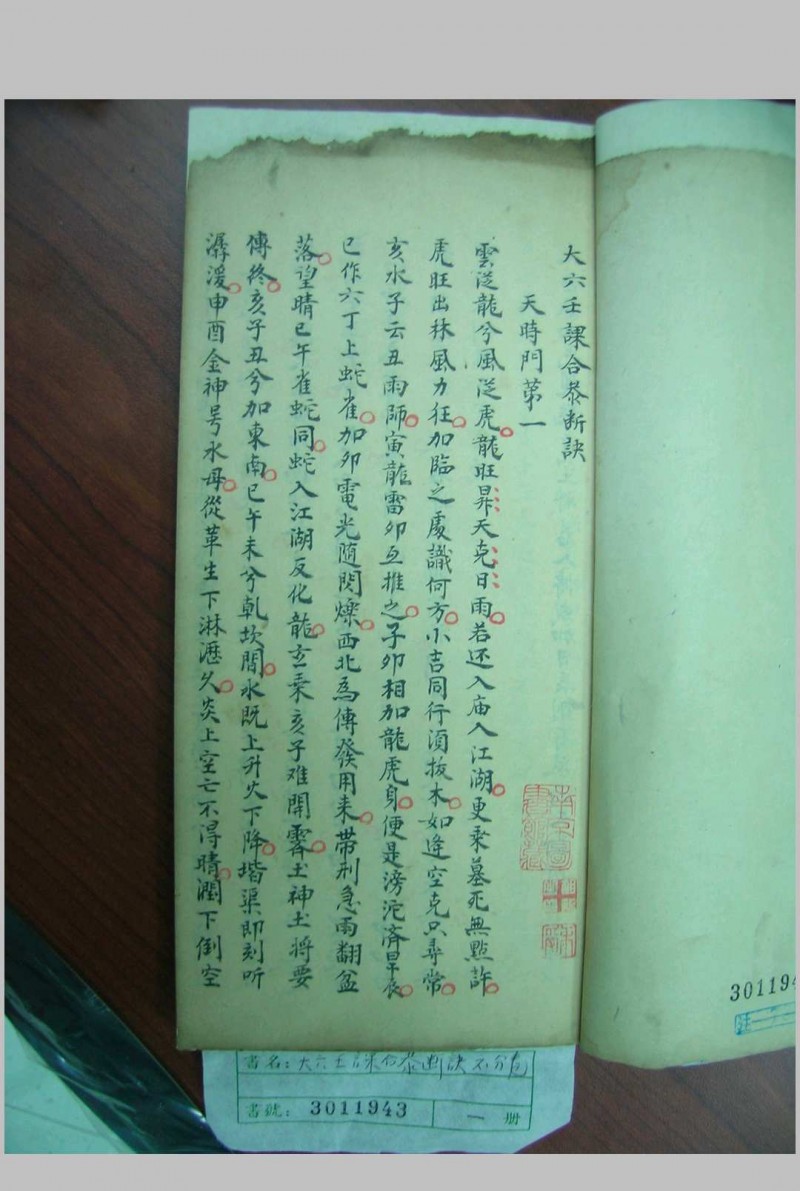 大六壬課合叅断訣
天時門第一
雲從龍兮風從虎龍旺昇天克日雨若还入庙入江湖更乘墓死無點許
虎旺出林風力狂加臨之處識何方小吉同行須拔木如逢空克只尋常
亥水子云丑雨師寅龍雷卯互推之子卯相加龍虎身便是滂沱济旱辰
巳作六丁上蛇雀加卯電光随閃爍西北為傳發用来带刑急雨翻盆
落望晴巳午雀蛇同蛇入江湖反化龍玄乘亥子难開霽土神土将要
傳终亥子丑兮加東南巳午未兮乹坎間水既上升火下降堦渠即刻听
潺湲申酉金神号水母從革生下淋漉久炎上空亡不得晴潤下倒空
書名：大六壬課合叅断訣不分卷
書號：3011943 一 册
301194